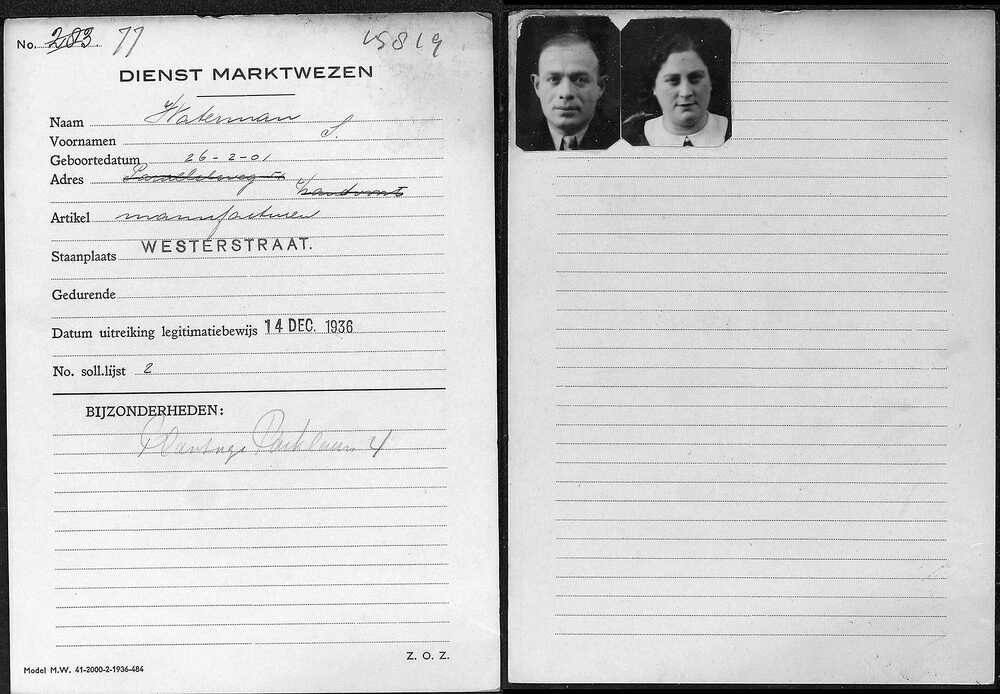 No. 283 77 15819
DIENST MARKTWEZEN
Naam Waterman
Voornamen S.
Geboortedatum 26-2-01
Adres
Zandvoort
Artikel manufacturen
Staanplaats WESTERSTRAAT.
Gedurende
Datum uitreiking legitimatiebewijs 14 DEC. 1936
No. soll.lijst 2
BIJZONDERHEDEN:
Plantage Parklaan 4
Z. O. Z.
Model M.W. 41-2000-2-1936-484